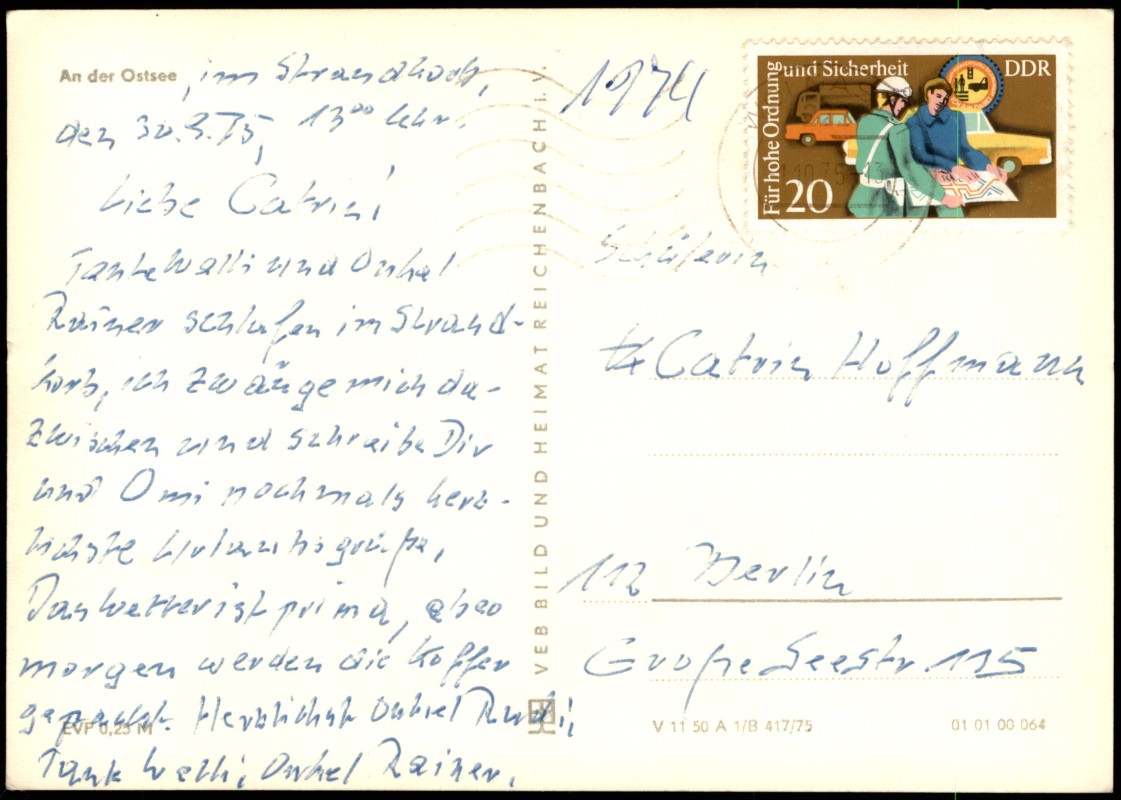 An der Ostsee, im Strandkorb,
den 30.9.75, 13⁰⁰ Uhr.
Liebe Catrin!
Tante Walli und Onkel
Rainer schlafen im Strand-
korb, ich zwänge mich da-
zwischen und schreibe Dir
und Omi nochmals herz-
lichste Urlaubsgrüße,
Das Wetter ist prima, aber
morgen werden die Koffer
gepackt. Herzlichst Onkel Rudi,
Tante Walli, Onkel Rainer.
EVP 0,25 M
VEB BILD UND HEIMAT REICHENBACH i. V.
1974
Für hohe Ordnung
und Sicherheit
DDR
20
Schülerin
Catrin Hoffmann
112 Berlin
Große Seestr. 115
V 11 50 A 1/B 417/75
01 01 00 064